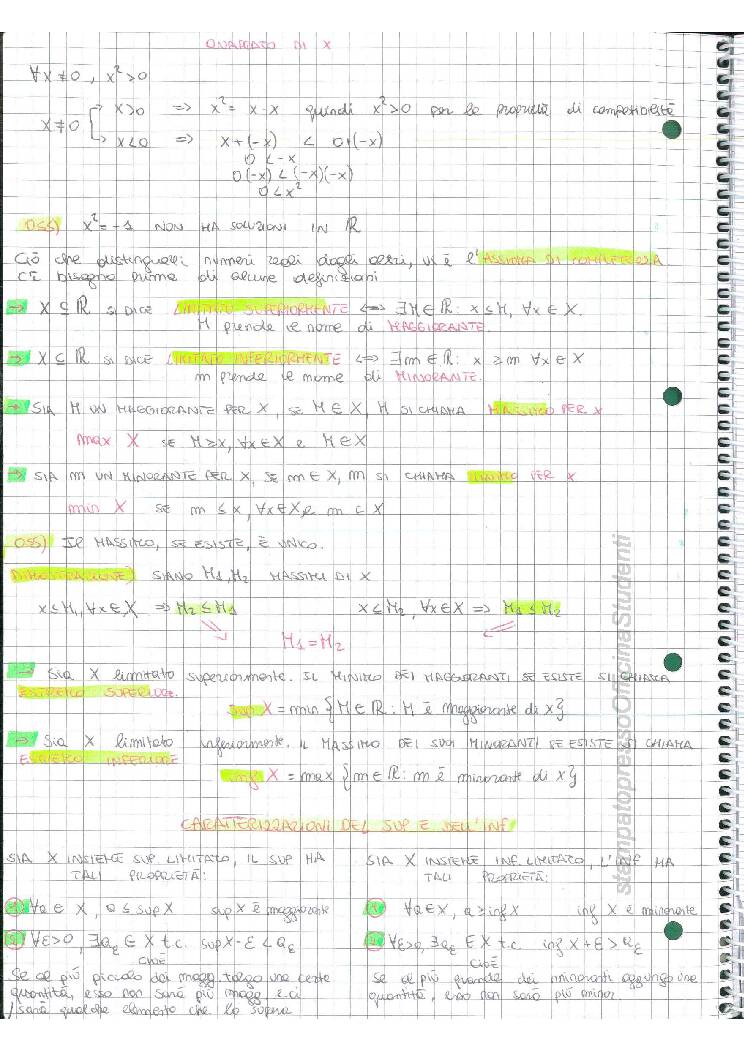 QUADRATO DI X
∀x≠0, x²>0
x≠0 → x>0 => x² = x·x quindi x²>0 per le proprietà di compatibilità
→ x<0 => x+(-x) < 0+(-x)
0 < -x
0(-x) < (-x)(-x)
0 < x²
OSS) x²=-1 NON HA SOLUZIONI IN ℝ
Ciò che distingue i numeri reali dagli altri, vi è l'ASSIOMA DI COMPLETEZZA
C'È bisogno prima di alcune definizioni
→ X ⊆ ℝ SI DICE LIMITATO SUPERIORMENTE <=> ∃M∈ℝ: x≤M, ∀x∈X.
M prende il nome di MAGGIORANTE.
→ X ⊆ ℝ SI DICE LIMITATO INFERIORMENTE <=> ∃m∈ℝ: x≥m ∀x∈X
m prende il nome di MINORANTE.
→ SIA M UN MAGGIORANTE PER X, SE M∈X, M SI CHIAMA MASSIMO PER X
max X SE M≥x, ∀x∈X e M∈X
→ SIA m UN MINORANTE PER X, SE m∈X, m SI CHIAMA MINIMO PER X
min X SE m≤x, ∀x∈X, e m∈X
OSS) IL MASSIMO, SE ESISTE, È UNICO.
DIMOSTRAZIONE) SIANO M₁, M₂ MASSIMI DI X
x≤M₁, ∀x∈X => M₂≤M₁ x≤M₂, ∀x∈X => M₁≤M₂
M₁=M₂
→ Sia X limitato superiormente. IL MINIMO DEI MAGGIORANTI SE ESISTE SI CHIAMA
ESTREMO SUPERIORE.
sup X = min {M∈ℝ: M è maggiorante di X}
→ Sia X limitato inferiormente. IL MASSIMO DEI SUOI MINORANTI SE ESISTE SI CHIAMA
ESTREMO INFERIORE
inf X = max {m∈ℝ: m è minorante di X}
CARATTERIZZAZIONI DEL SUP E DELL'INF
SIA X INSIEME SUP. LIMITATO, IL SUP HA
TALI PROPRIETÀ:
1 ∀a∈X, a≤supX sup X è maggiorante
2 ∀ε>0, ∃aε∈X t.c. supX-ε<aε
CIOÈ
Se al più piccolo dei magg. tolgo una certa
quantità, esso non sarà più magg e ci
sarà qualche elemento che lo supera
SIA X INSIEME INF. LIMITATO, L'INF HA
TALI PROPRIETÀ:
1 ∀a∈X, a≥infX inf X è minorante
2 ∀ε>0, ∃aε∈X t.c. inf X+ε>aε
CIOÈ
Se al più grande dei minoranti aggiungo una
quantità, esso non sarà più minor.
stampatopressoOfficinaStudenti